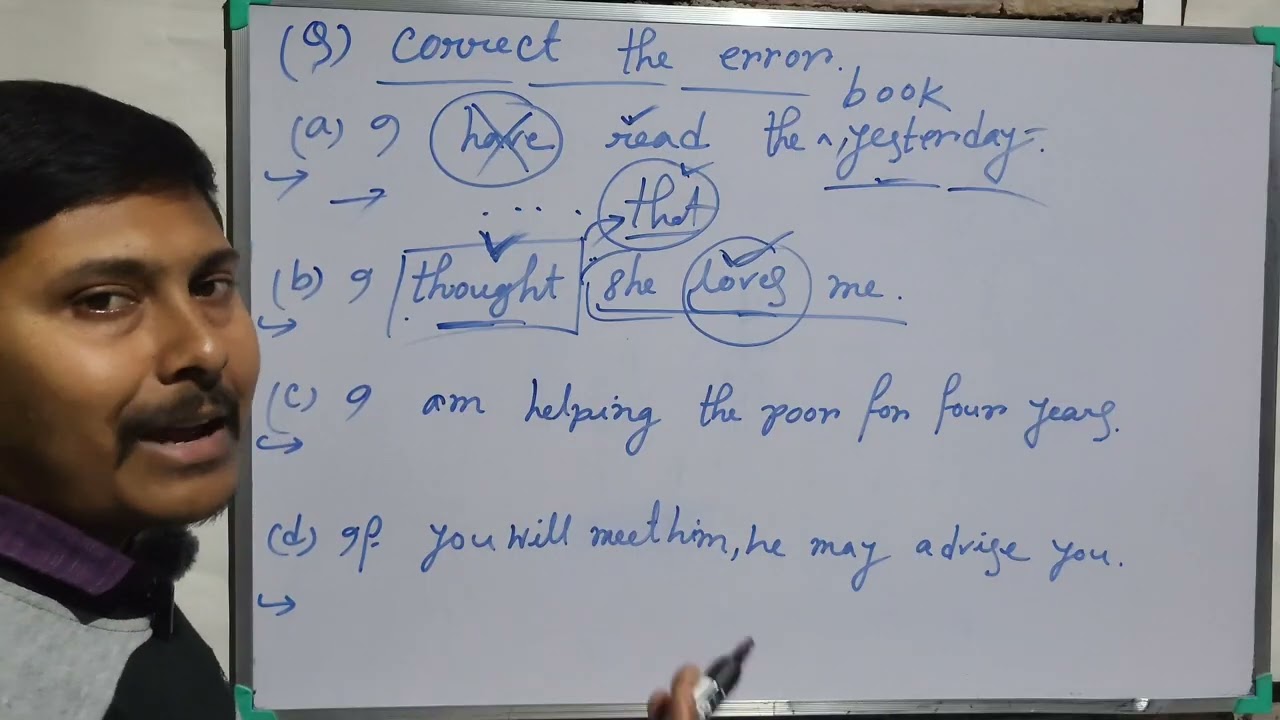 (Q) Correct the error.
book
(a) I have read the ^ yesterday.
that
(b) I thought she loves me.
(c) I am helping the poor for four years.
(d) If you will meet him, he may advise you.